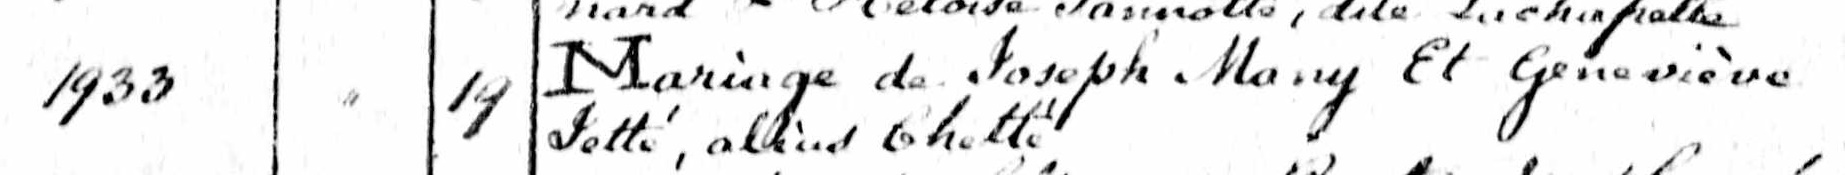 nard & Héloïse Jannotte, dite Lachapelle
1933 " 19 Mariage de Joseph Many Et Geneviève
Jetté, aliùs Chetté